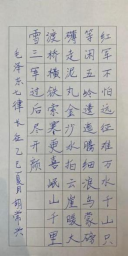 红军不怕远征难万水千山只
等闲五岭逶迤腾细浪乌蒙磅
礴走泥丸金沙水拍云崖暖大
渡桥横铁索寒更喜岷山千里
雪三军过后尽开颜
毛泽东七律长征乙巳夏月